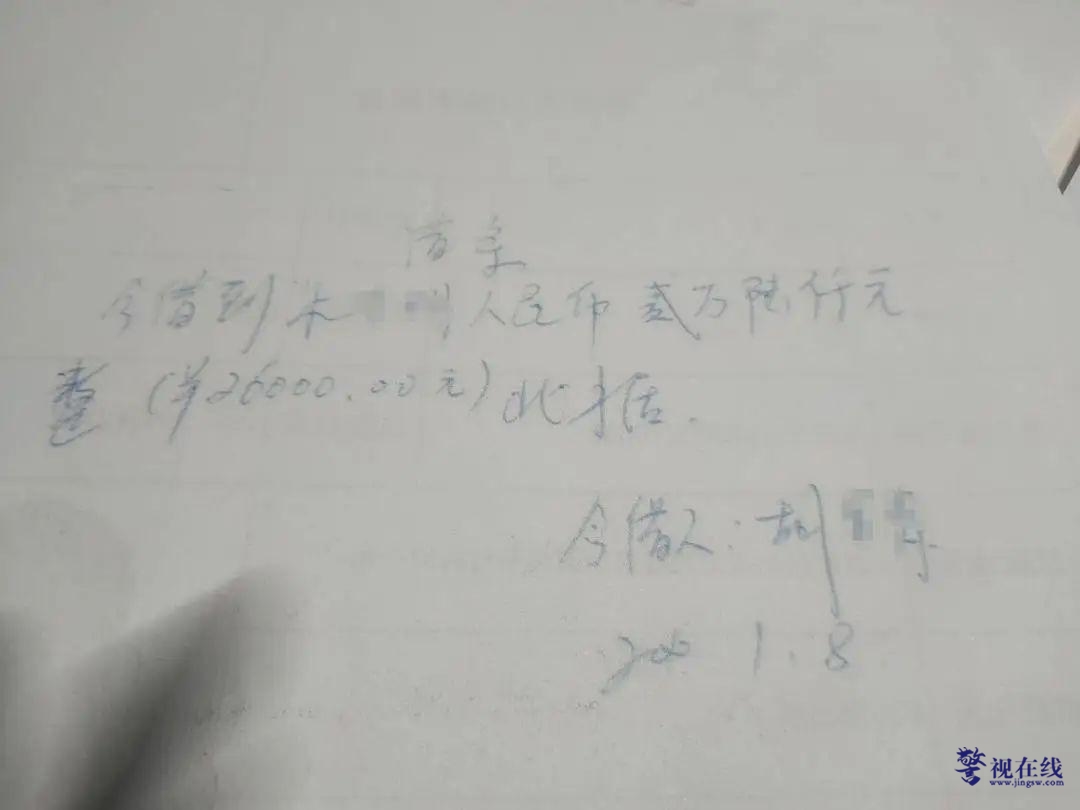 借条
今借到朱 人民币贰万陆仟元
整(¥26000.00元)此据.
今借人:胡
1.8
警视在线
www.jingsw.com